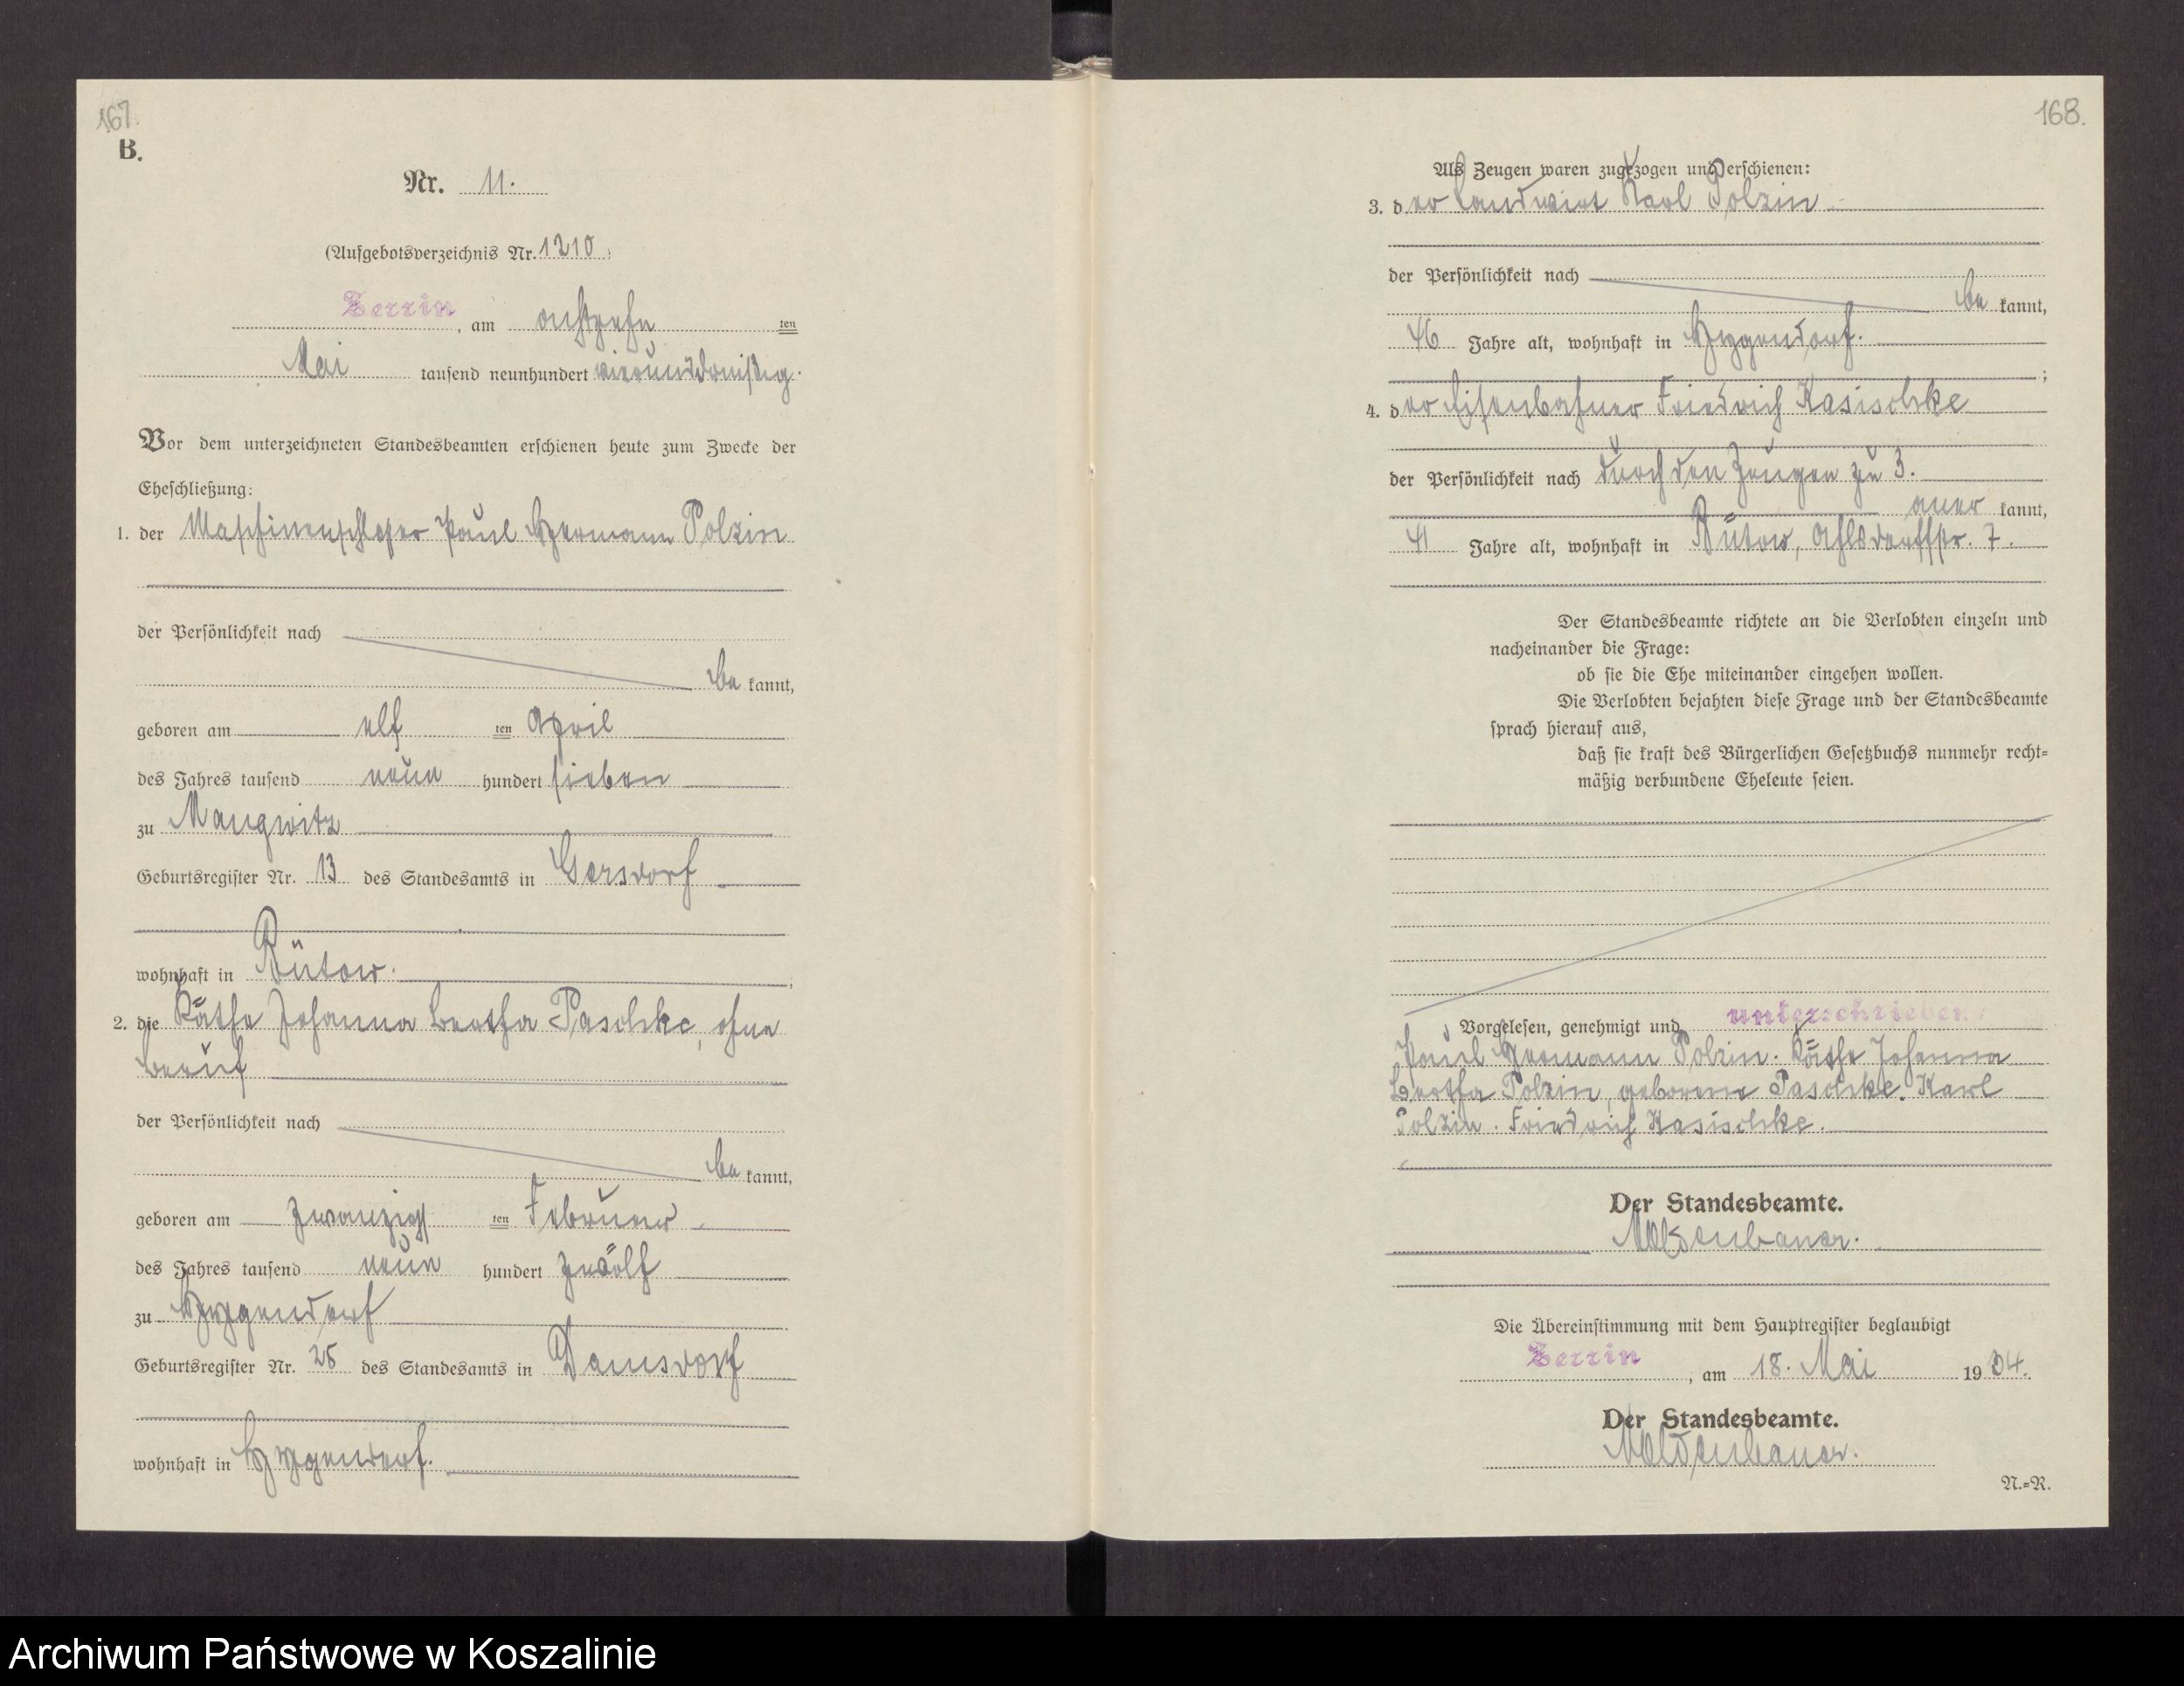 167.
B.
Nr. 11.
(Aufgebotsverzeichnis Nr. 1210)
Zerrin, am achtzehn ten
Mai tausend neunhundert vierunddreißig.
Vor dem unterzeichneten Standesbeamten erschienen heute zum Zwecke der
Eheschließung:
1. der Maschinenschlosser Paul Hermann Polzin
der Persönlichkeit nach
be kannt,
geboren am elf ten April
des Jahres tausend neun hundert sieben
zu Mangwitz
Geburtsregister Nr. 13 des Standesamts in Gersdorf
wohnhaft in Bütow.;
2. die Käthe Johanna Bertha Paschke, ohne
Beruf
der Persönlichkeit nach
be kannt,
geboren am zwanzigs ten Februar
des Jahres tausend neun hundert zwölf
zu Hygendorf
Geburtsregister Nr. 25 des Standesamts in Damsdorf
wohnhaft in Hygendorf.
168.
Als Zeugen waren zugezogen und erschienen:
3. der Landwirt Karl Polzin
der Persönlichkeit nach
be kannt,
46 Jahre alt, wohnhaft in Hygendorf.
;
4. der Eisenbahner Friedrich Kasischke
der Persönlichkeit nach durch den Zeugen zu 3.
aner kannt,
41 Jahre alt, wohnhaft in Bütow, Ahlsdorffstr. 7.
Der Standesbeamte richtete an die Verlobten einzeln und
nacheinander die Frage:
ob sie die Ehe miteinander eingehen wollen.
Die Verlobten bejahten diese Frage und der Standesbeamte
sprach hierauf aus,
daß sie kraft des Bürgerlichen Gesetzbuchs nunmehr recht-
mäßig verbundene Eheleute seien.
Vorgelesen, genehmigt und unterschrieben:
Paul Hermann Polzin. Käthe Johanna
Bertha Polzin, geborene Paschke. Karl
Polzin. Friedrich Kasischke.
Der Standesbeamte.
Die Übereinstimmung mit dem Hauptregister beglaubigt
Zerrin, am 18. Mai 1934.
Der Standesbeamte.
N.-R.
Archiwum Państwowe w Koszalinie